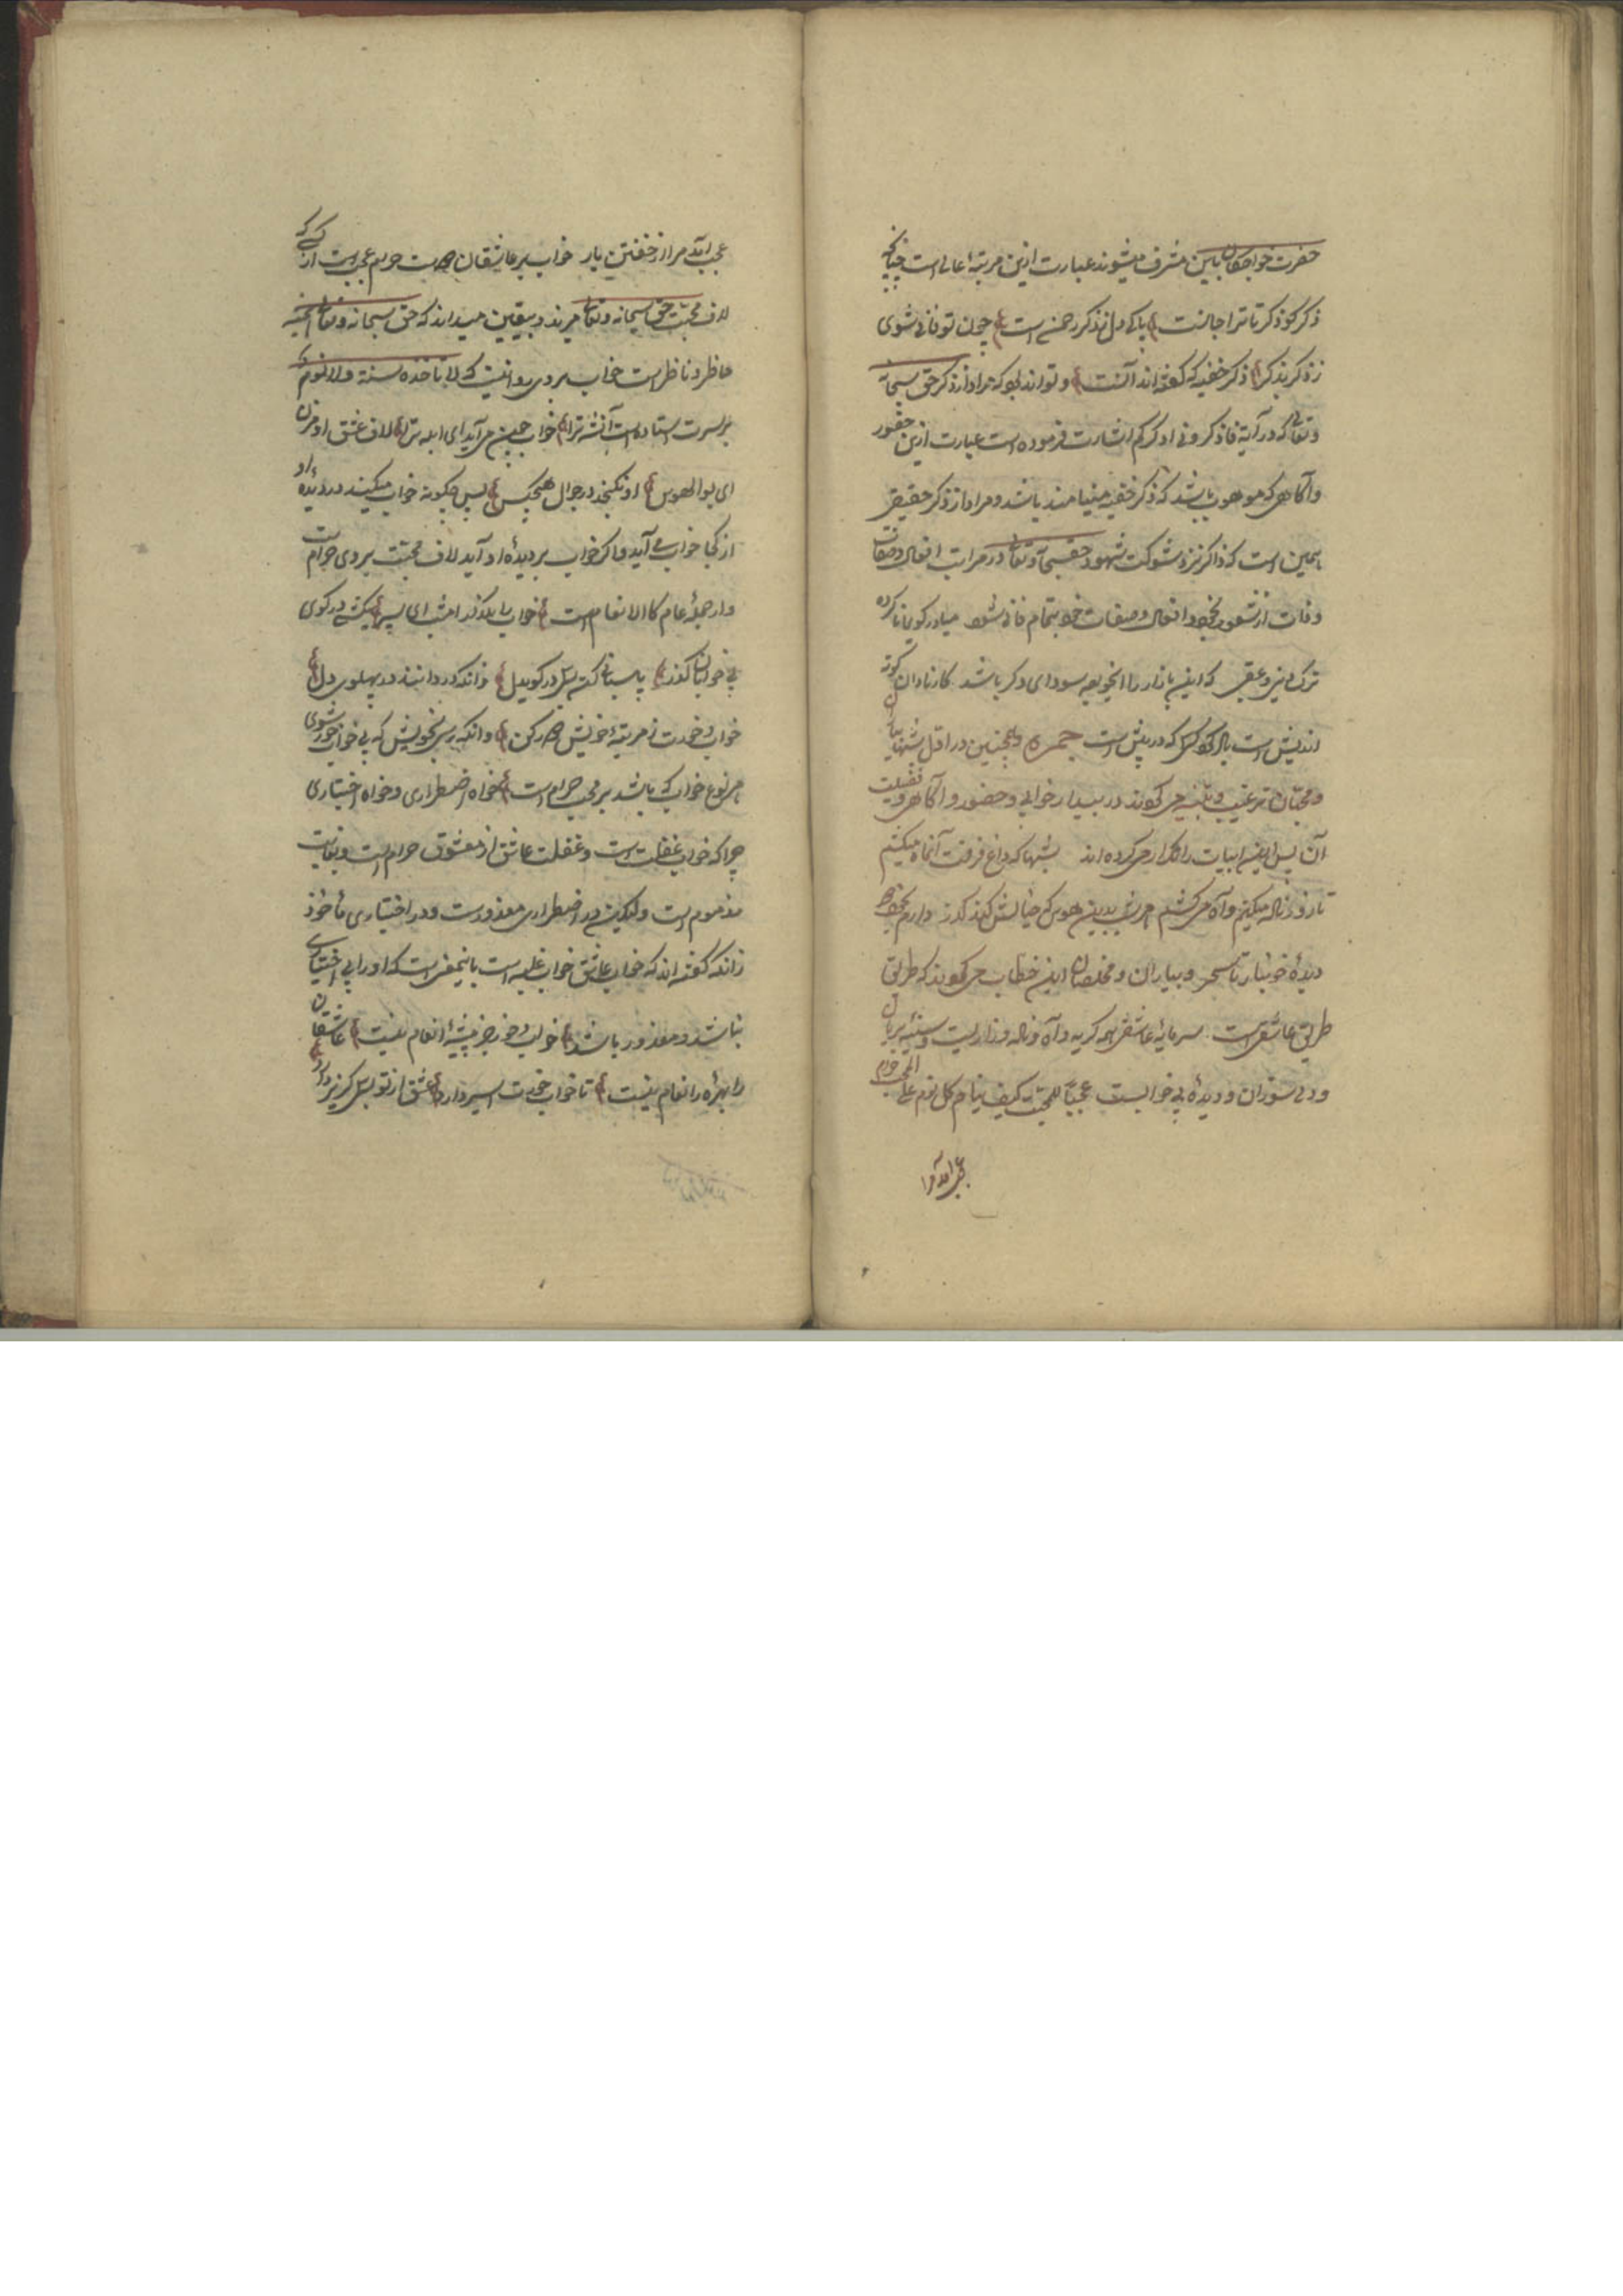 حضرت خواجگان باین مشرف میشوند عبارت ازین مرتبهٔ عالی است چنانچه
ذکر کو ذکر تا ترا جانست پاکی دل ز ذکر رحمن است چون تو فانی شوی
ز ذکر بذکر ذکر خفیه که گفته اند آنست و تواند بود که مراد از ذکر حق سبحانه
و تعالی که در آیهٔ فاذکرونی اذکرکم اشارت فرموده است عبارت ازین حضور
و آگاهی که موهوب باشد که ذکر خفیه باشد و مراد از ذکر حقیقی
همین است که ذاکر نزد شوکت شهود حق سبحانه و تعالی در مراتب افعال و صفات
و ذات از شعور بخود و افعال و صفات خود بتمام فانی شود
ترک دنیی و عقبی که این بازار را سودای دگر باشد کار نادان کوته
اندیش است یاد کردن کسی که در پیش است همچنین در اول شبها
و محبان را ترغیب و تنبیه می کردند در بیدار خوابی و حضور و آگاهی و فضیلت
آن پس این ابیات را تکرار می کرده اند شبها که داغ فرقت آنماه میکشم
تا روز ناله میکنم و آه می کشم امشب بدین هوس که خیالش کند گذر دارم
دیدهٔ خونبار تا سحر و بیاران و مخلصان این خطاب می کردند که طریق
طریق عاشقی است سرمایهٔ عاشقی همه گریه و آه و ناله و زاریست و سینهٔ بریان
و دل سوزان و دیدهٔ بی خوابست عجبا للمحب کیف ینام کل نوم علی المحب حرام
عجب آید مرا
عجب آید مرا از خفتن یار خواب بر عاشقان حرامست عجبست از کسی که
لاف محبت حق سبحانه و تعالی میزند و بیقین میداند که حق سبحانه و تعالی همیشه
حاضر و ناظر است خواب بر وی روا نیست که لا تاخذه سنة و لا نوم
بر سرت استاده است آن شه ترا خواب چون می آید ای ابله ترا لاف عشق او مزن
ای بوالهوس او نگنجد در جوال هیچکس پس چگونه خواب میگنجد در دیدهٔ او
از کجا خواب می آید و اگر خواب بر دیدهٔ او آید لاف محبت بر وی حرام است
و از جملهٔ عام کالانعام است خواب را بگذار امشب ای پسر یکشبی در کوی
بی خوابان گذر پاسبانی کن بسی در کوی دل زانکه دزدانند در پهلوی دل
خواب و خورت ز مرتبهٔ خویش دور کرد و انگه رسی بخویش که بی خواب و خور شوی
هر نوع خواب که باشد بر محب حرام است خواه اضطراری و خواه اختیاری
چرا که خواب غفلت است و غفلت عاشق از معشوق حرام است و بغایت
مذموم است و لیکن در اضطراری معذور است و در اختیاری مأخوذ
زانکه گفته اند که خواب عاشق خواب غلبه است باینمعنی است که او را بی اختیاری
بباشد و معذور باشد خواب و خور جز پیشهٔ انعام نیست عاشقان
را بهره ز انعام نیست تا خواب و خورت اسیر دارد عشق از تو بسی گریز دارد